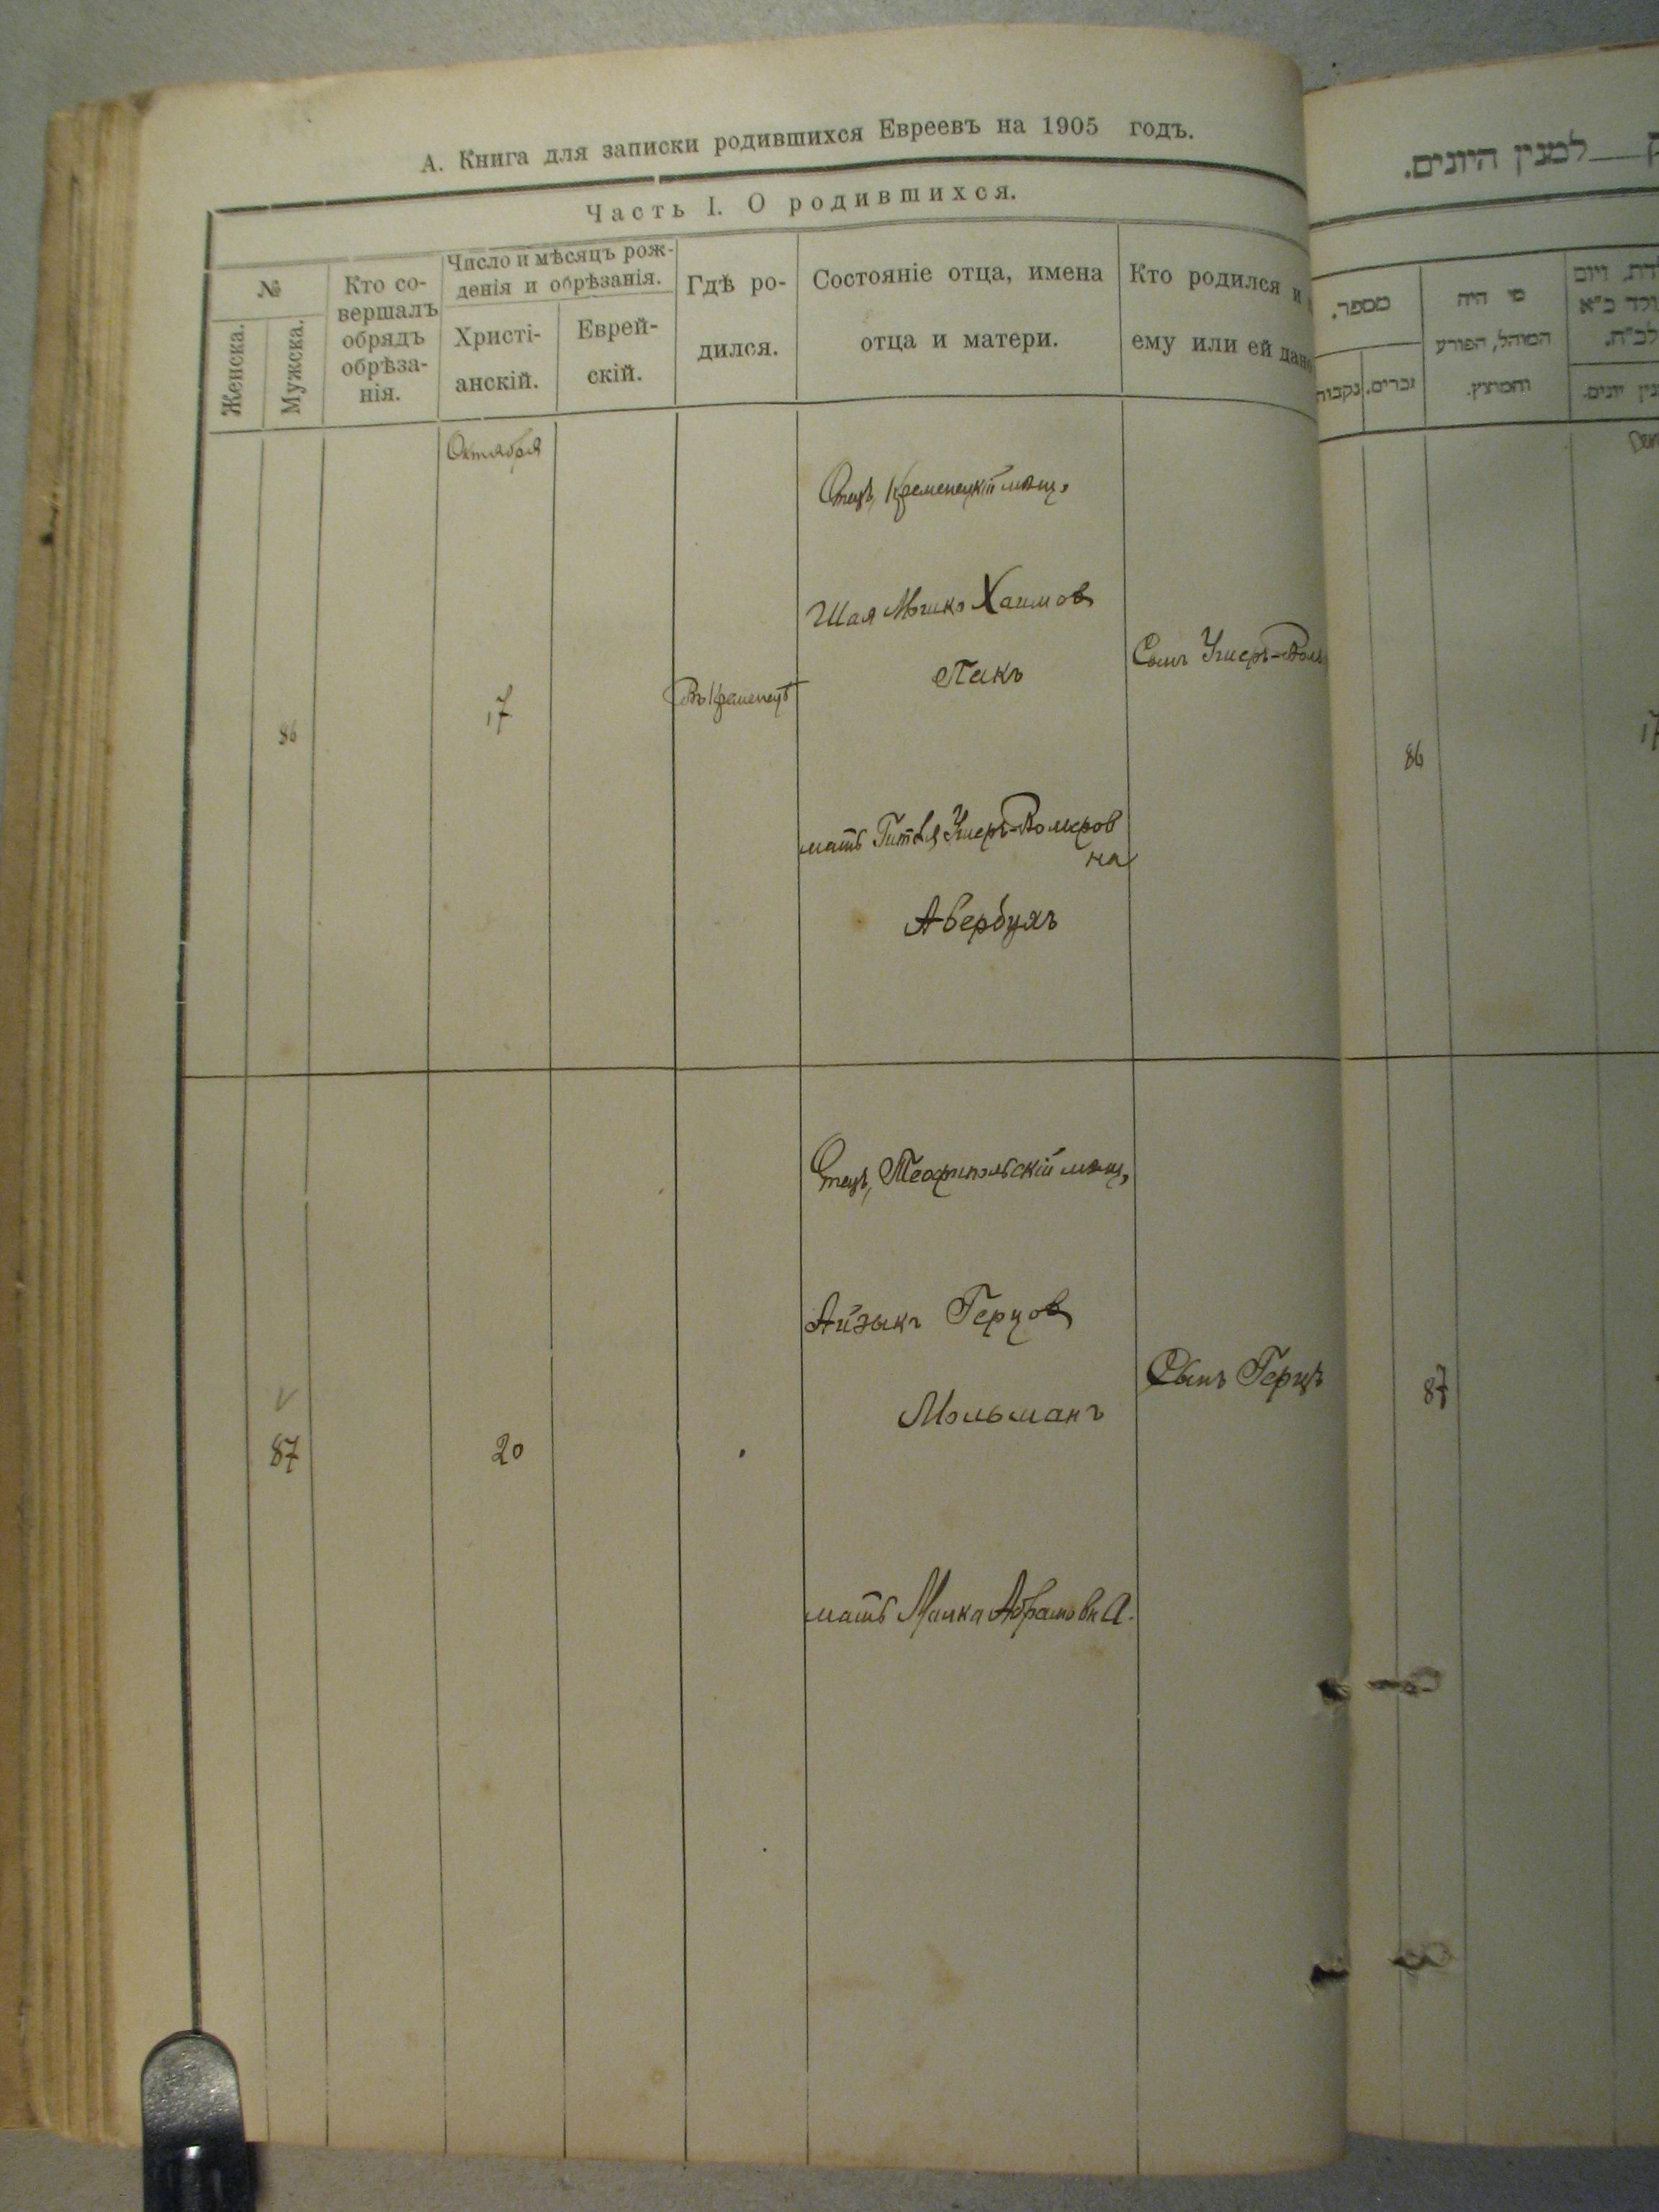 А. Книга для записки родившихся Евреевъ на 1905 годъ.
Часть I. О родившихся.
№
Женска.
Мужска.
Кто со-
вершалъ
обрядъ
обрѣза-
нія.
Число и мѣсяцъ рож-
денія и обрѣзанія.
Христі-
анскій.
Еврей-
скій.
Гдѣ ро-
дился.
Состояніе отца, имена
отца и матери.
Кто родился и
ему или ей дано
Октября
86
17
Въ Кременецѣ
Отецъ, Кременецкій мѣщ.
Шая Хаимов
Пакъ
мать Гитля Ушеръ-Волеров
на
Авербухъ
Сынъ Ушеръ-Вол
87
20
Отецъ, Теофипольскій мѣщ,
Айзыкъ Герцов
Мольманъ
мать Малка Абрамовна.
Сынъ Герцъ
למנין היונים.
מספר.
נקבות
זכרים.
מי היה
המוהל, הפורע
והמוצץ.
86
17
87